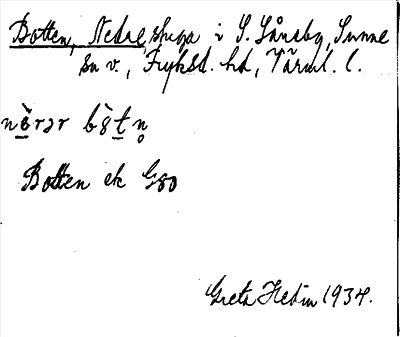 Botten, Nedre, stuga i S. Lånsby, Sunne
sn v., Fryksd. hd, Värml. l.
Botten ek G80
Greta Hedin 1934.